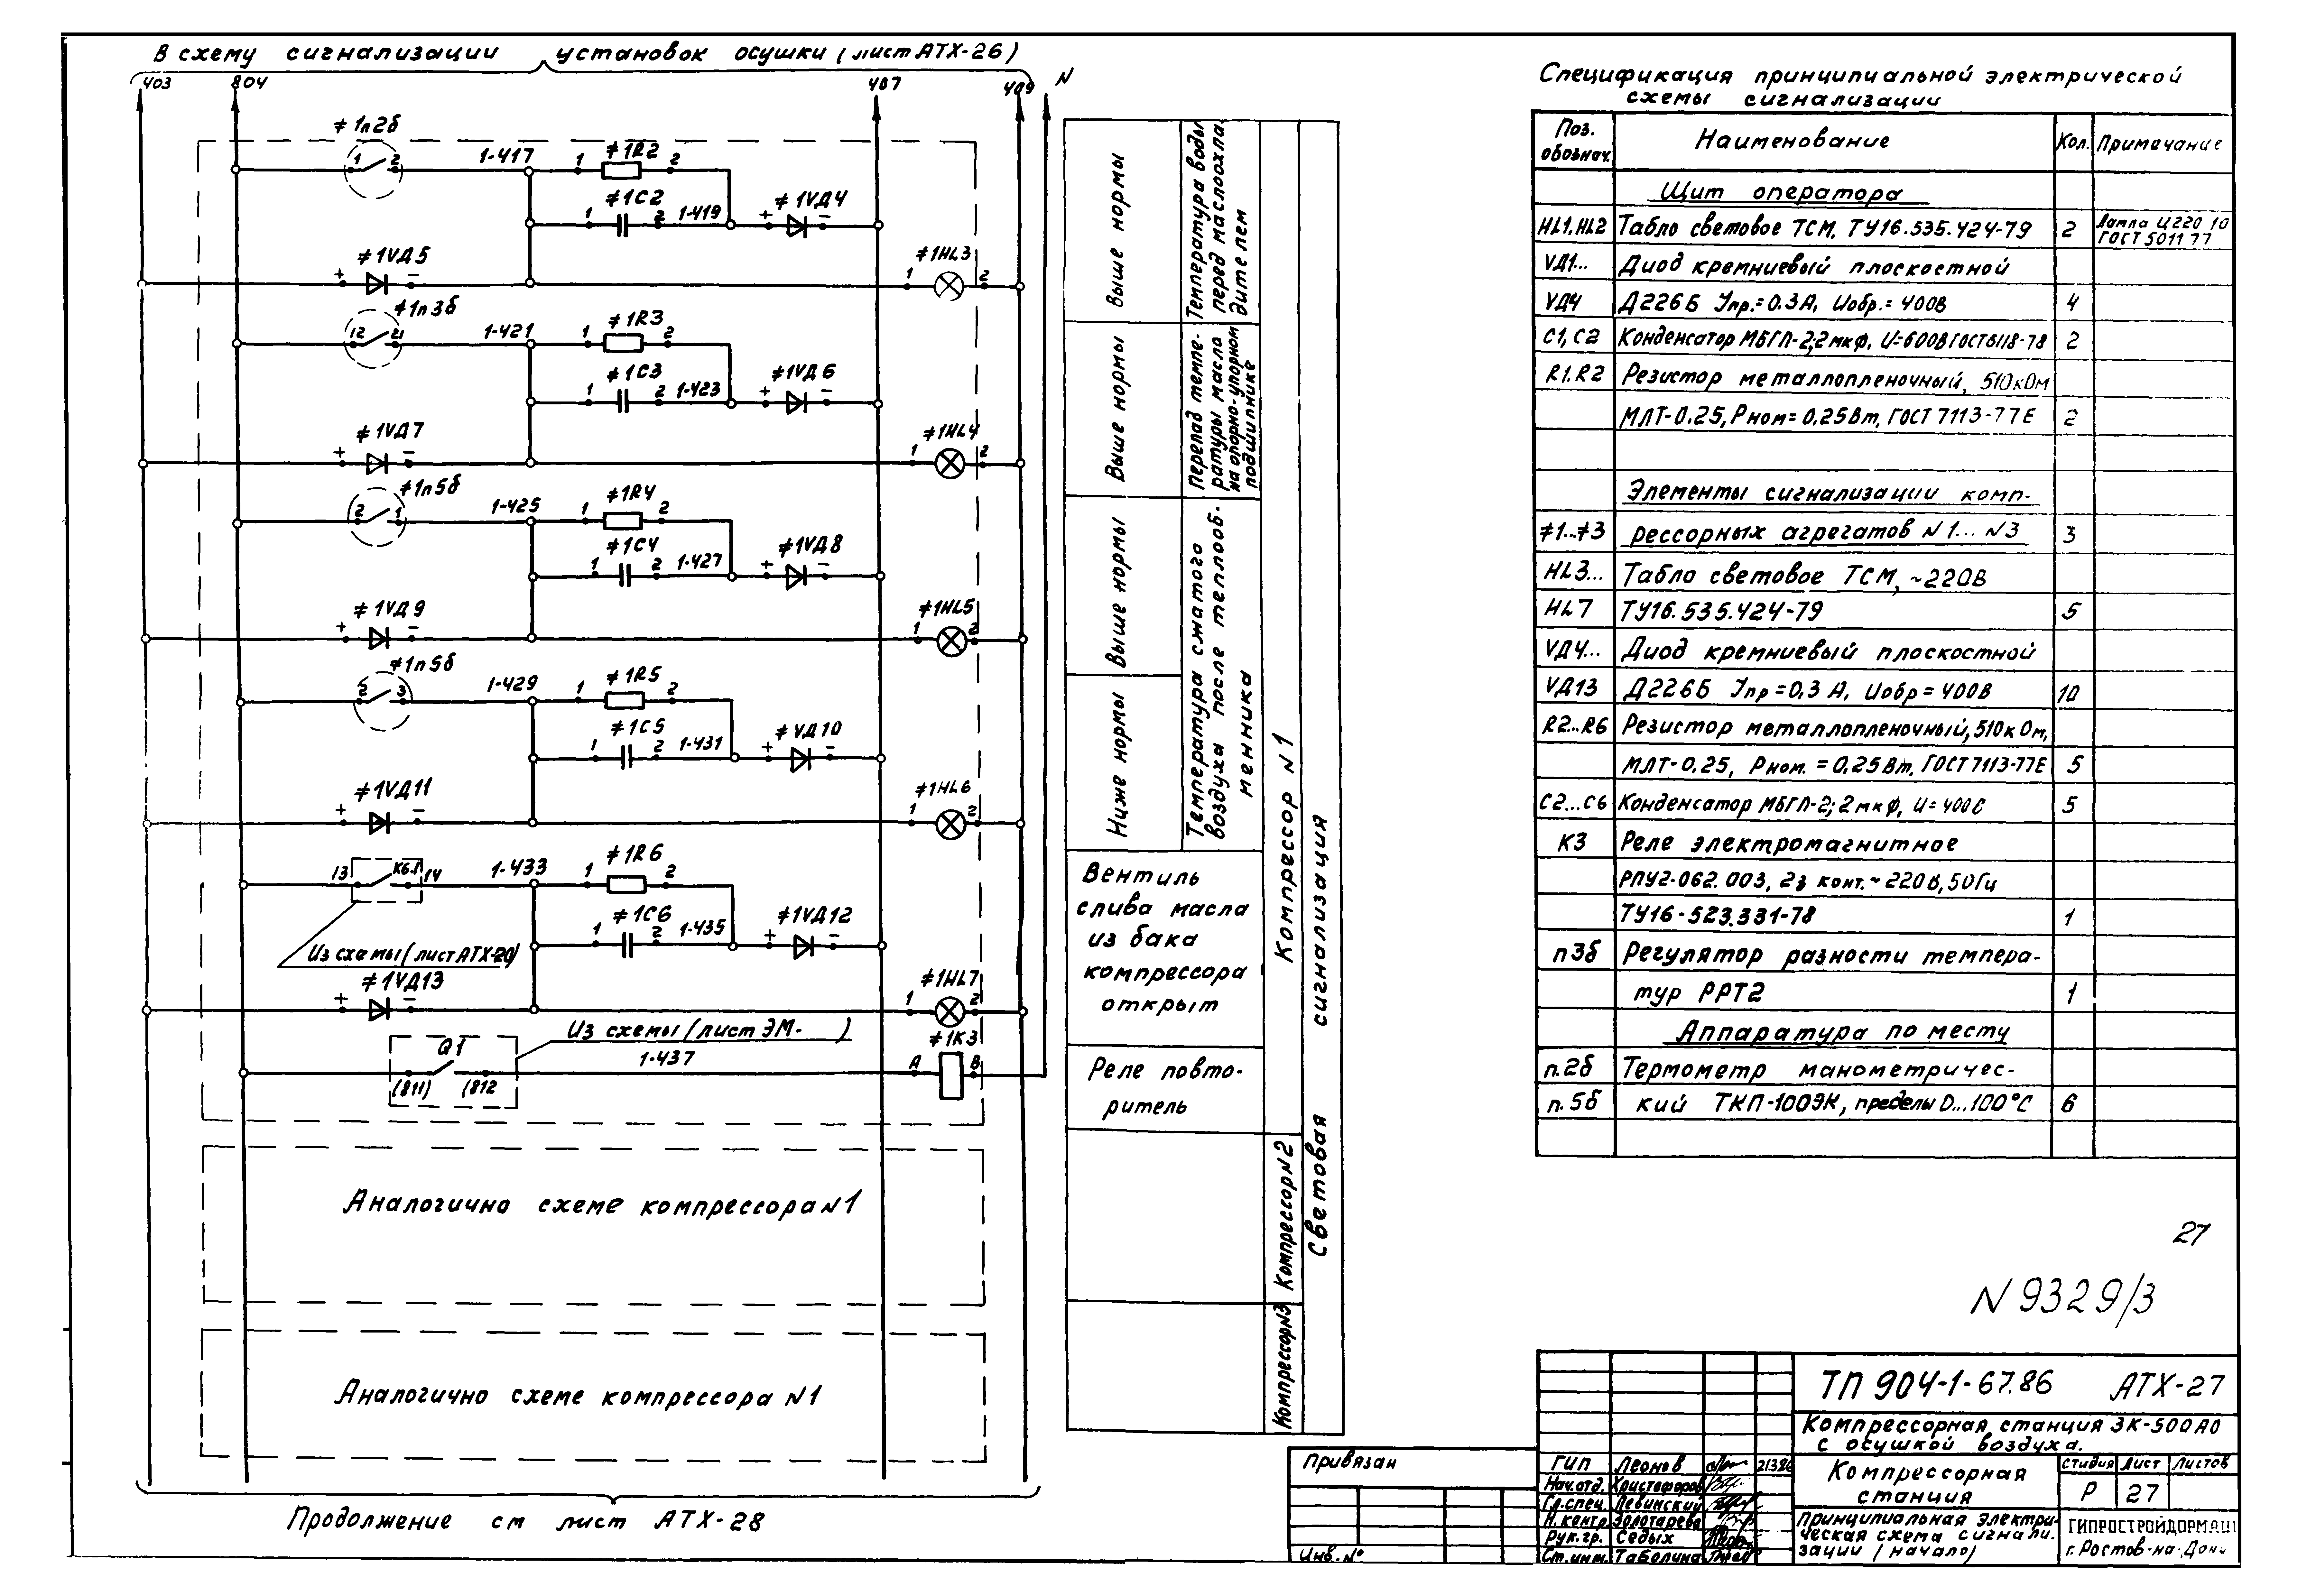 В схему сигнализации установок осушки (лист АТХ-26)
403
804
407
409
N
≠1п2б
1 2
1-417
1 ≠1R2 2
≠1С2
1 2 1-419
≠1VД4
+ −
≠1VД5
+ −
≠1HL3
1 2
≠1п3б
12 21
1-421
1 ≠1R3 2
≠1С3
1 2 1-423
≠1VД6
+ −
≠1VД7
+ −
≠1HL4
1 2
≠1п5б
2 1
1-425
1 ≠1R4 2
≠1С4
1 2 1-427
≠1VД8
+ −
≠1VД9
+ −
≠1HL5
1 2
≠1п5б
2 3
1-429
1 ≠1R5 2
≠1С5
1 2 1-431
≠VД10
+ −
≠1VД11
+ −
≠1HL6
1 2
13 К6.1 14
1-433
1 ≠1R6 2
≠1С6
1 2 1-435
≠1VД12
+ −
Из схемы (лист АТХ-20)
≠1VД13
+ −
≠1HL7
1 2
Из схемы (лист ЭМ- )
Q1
(811) (812
1-437
≠1К3
А В
Аналогично схеме компрессора N1
Аналогично схеме компрессора N1
Продолжение см лист АТХ-28
Выше нормы
Температура воды
перед маслоохла-
дителем
Выше нормы
Перепад темпе-
ратуры масла
на опорно-упорном
подшипнике
Выше нормы
Ниже нормы
Температура сжатого
воздуха после теплооб-
менника
Вентиль
слива масла
из бака
компрессора
открыт
Реле повто-
ритель
Компрессор N1
Компрессор N2
Компрессор N3
Световая сигнализация
Спецификация принципиальной электрической
схемы сигнализации
Поз. обознач. Наименование Кол. Примечание
Щит оператора
HL1, HL2 Табло световое ТСМ, ТУ16.535.424-79 2 Лампа Ц220 10 ГОСТ 5011 77
VД1... Диод кремниевый плоскостной
VД4 Д226Б Iпр.=0.3А, Uобр.= 400В 4
С1, С2 Конденсатор МБГП-2;2мкФ, U=600В ГОСТ6118-78 2
R1.R2 Резистор металлопленочный, 510кОм
МЛТ-0.25, Рном=0.25Вт, ГОСТ 7113-77Е 2
Элементы сигнализации комп-
≠1...≠3 рессорных агрегатов N1... N3 3
HL3... Табло световое ТСМ, ~220В
HL7 ТУ16.535.424-79 5
VД4... Диод кремниевый плоскостной
VД13 Д226Б Iпр=0,3 А, Uобр=400В 10
R2...R6 Резистор металлопленочный, 510кОм,
МЛТ-0,25, Рном. =0,25Вт, ГОСТ 7113-77Е 5
С2...С6 Конденсатор МБГП-2; 2мкФ, U= 400С 5
К3 Реле электромагнитное
РПУ2-062.003, 2з конт. ~220В, 50Гц
ТУ16-523.331-78 1
п3б Регулятор разности темпера-
тур РРТ2 1
Аппаратура по месту
п.2б Термометр манометричес-
п.5б кий ТКП-100ЭК, пределы 0...100°С 6
27
N 9329/3
Привязан
Инв. №
ТП 904-1-67.86 АТХ-27
Компрессорная станция 3К-500А0
с осушкой воздуха.
ГИП Леонов 21.3.86
Нач.отд. Христофоров
Гл.спец. Левинский
Н.контр. Золотарева
Рук.гр. Седых
Ст.инж. Таболина
Компрессорная
станция
Стадия Лист Листов
Р 27
Принципиальная электри-
ческая схема сигнали-
зации (начало)
ГИПРОСТРОЙДОРМАШ
г.Ростов-на-Дону